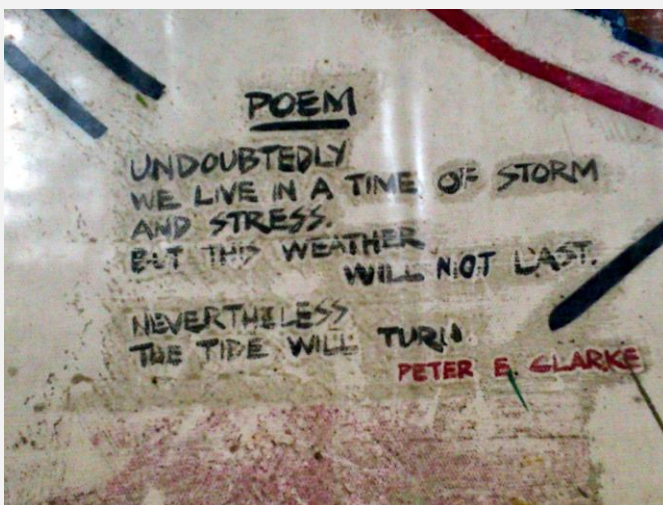 POEM
UNDOUBTEDLY
WE LIVE IN A TIME OF STORM
AND STRESS.
BUT THIS WEATHER
WILL NOT LAST.
NEVERTHELESS
THE TIDE WILL TURN
PETER E. CLARKE